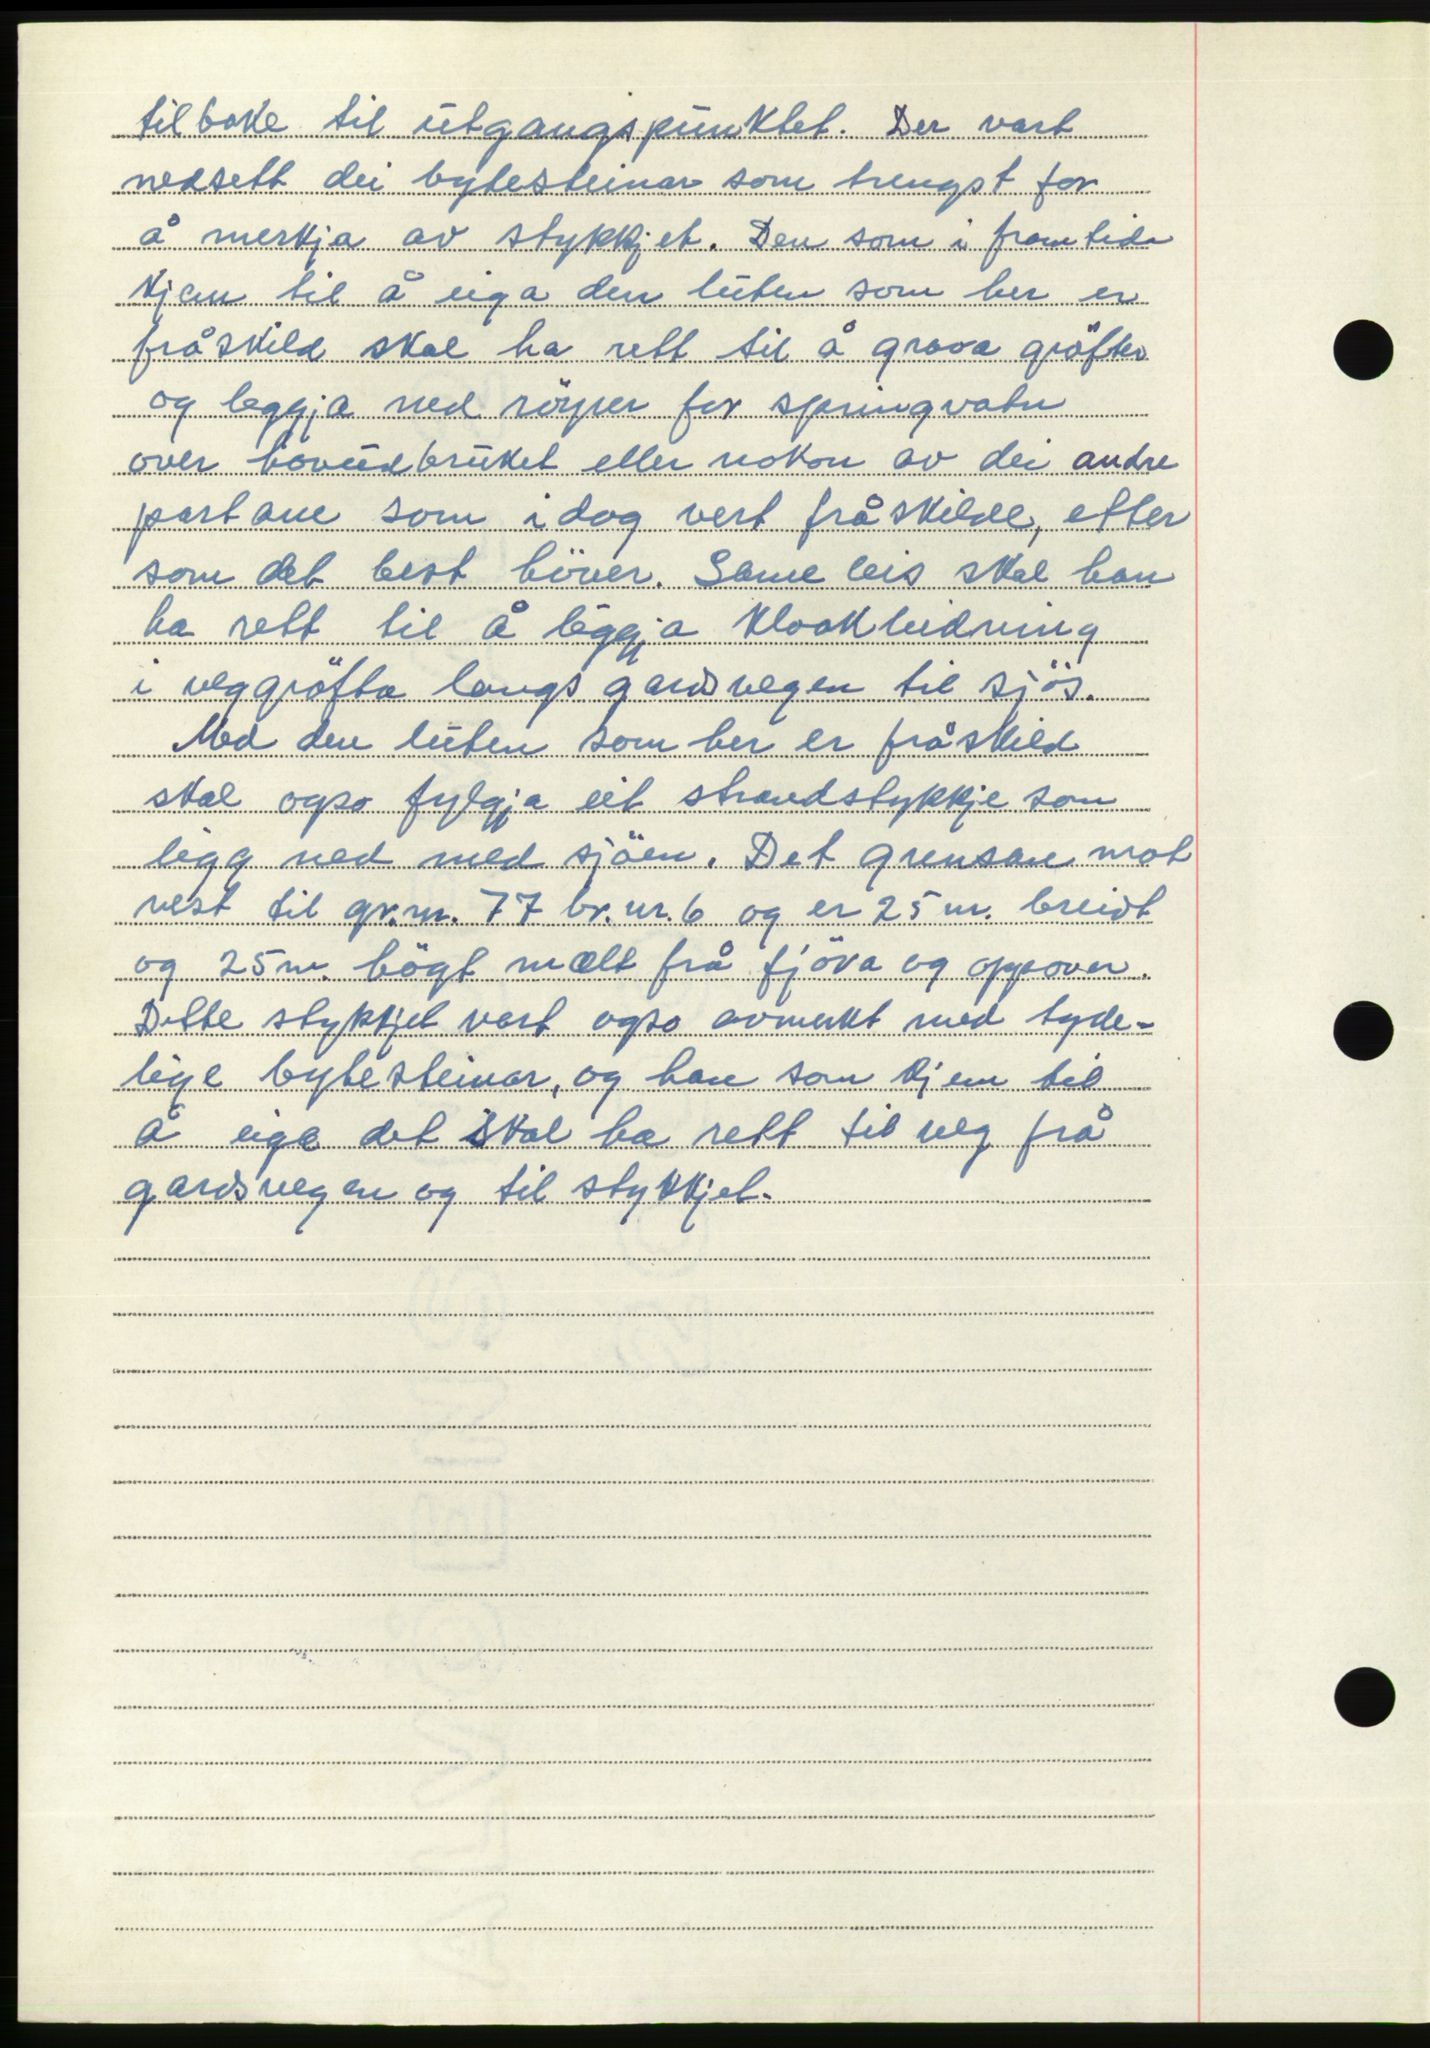 tilbake til utgangspunktet. Der vart
nedsett dei bytesteinar som trengst for
å merkja av stykkjet. Den som i framtida
kjem til å eiga den luten som her er
fråskild skal ha rett til å grava gröfter
og leggja ned röyrer for springvatn
over hovudbruket eller nokon av dei andre
partane som idag vert fråskilde, etter
som det best höver. Same leis skal han
ha rett til å leggja kloakleidning
i veggröfta langs gardsvegen til sjös.
Med den luten som her er fråskild
skal ogso fylgja eit strandstykkje som
ligg ned med sjöen. Det grensar mot
vest til gr.nr. 77 br.nr. 6 og er 25 m. breidt
og 25 m. högt mælt frå fjöra og oppover.
Dette stykkjet vart ogso avmerkt med tyde-
lige bytesteinar, og han som kjem til
å eiga det skal ha rett til veg frå
gardsvegen og til stykkjet.